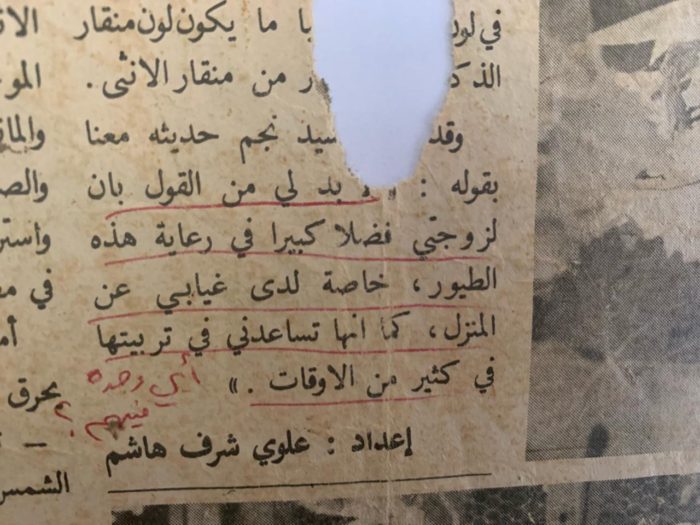 في لون با ما يكون لون منقار
الذكر من منقار الانثى .
وقد سيد نجم حديثه معنا
بقوله : « لا بد لي من القول بان
لزوجتي فضلا كبيرا في رعاية هذه
الطيور ، خاصة لدى غيابي عن
المنزل ، كما انها تساعدني في تربيتها
في كثير من الاوقات . »
أي وحده
فيهم ؟
إعداد : علوي شرف هاشم
المو
والصـ
في مـ
يحرق
الشمس